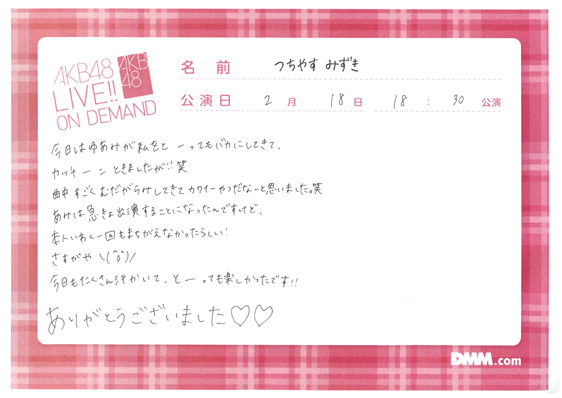 AKB48
LIVE!!
ON DEMAND
AKB
48
名前 つちやす みずき
公演日 2月 18日 18:30 公演
今日はゆあみが私をとーってもバカにしてきて、
カッチーンときましたが!!笑
曲中すごくむだがらみしてきてカワイーやつだなーと思いました。笑
あみは急きょ出演することになったんですけど、
本人いわく一回もまちがえなかったらしい!
さすがや \(^o^)/
今日もたくさん汗かいて、とーっても楽しかったです!!
ありがとうございました♡♡
DMM.com